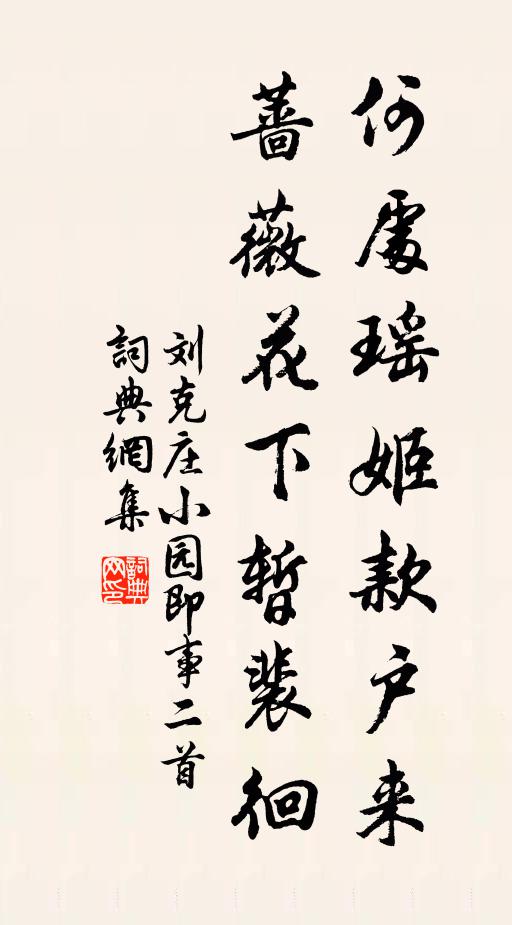 何處瑶姬款户来
蔷薇花下暫裴徊
刘克庄小园即事二首
詞典網集
詞典网印